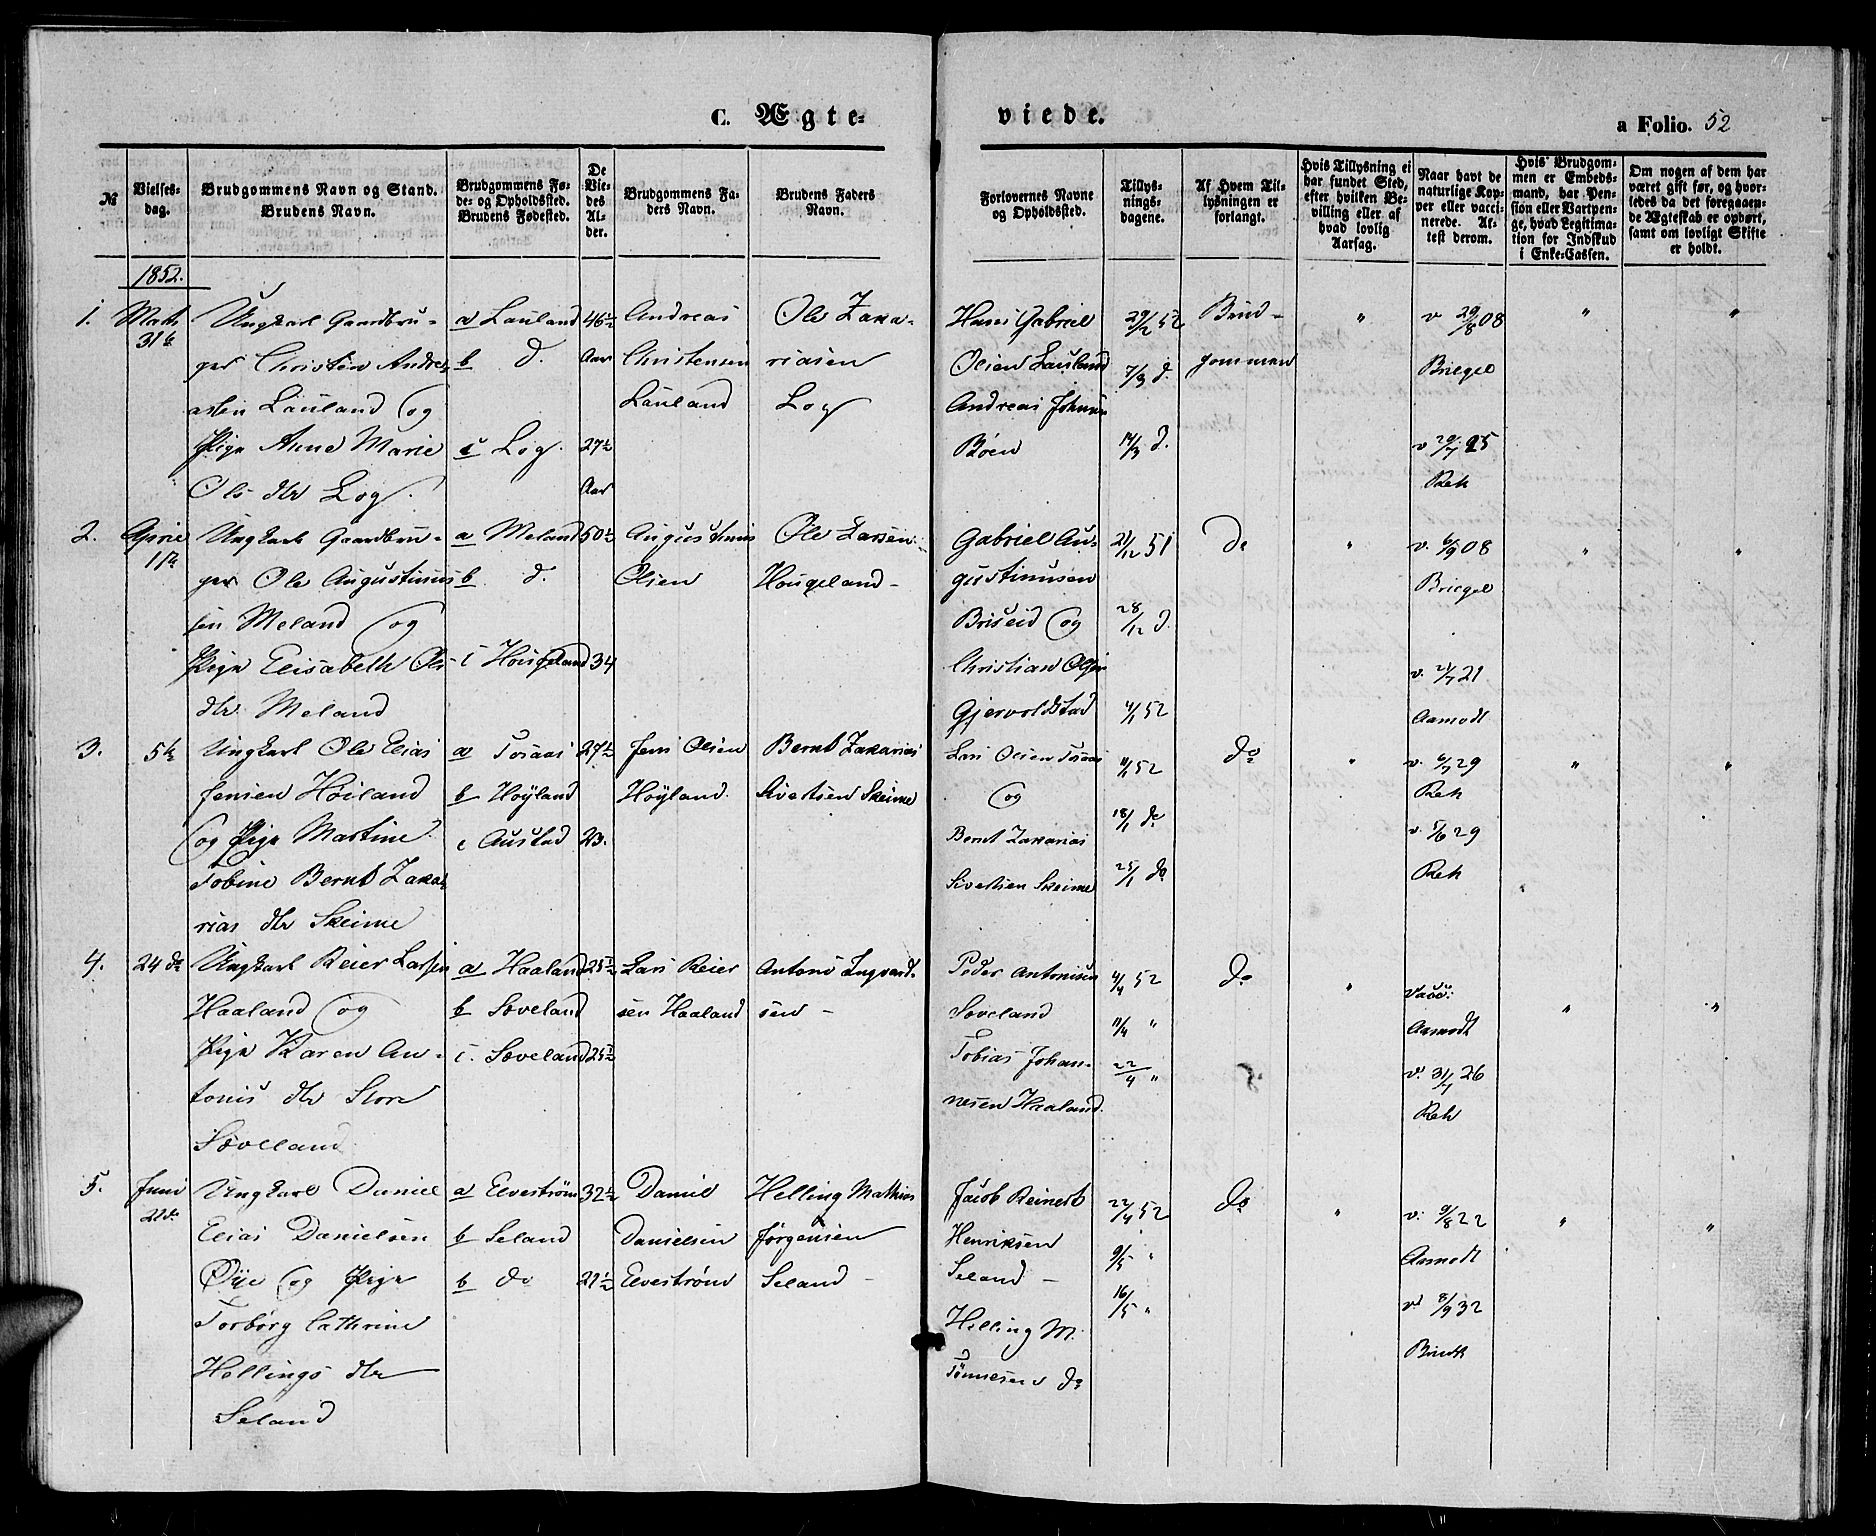 C. Ægte-
viede.
a Folio. 52
№
Vielses-
dag.
Brudgommens Navn og Stand.
Brudens Navn.
Brudgommens Fø-
de- og Opholdssted.
Brudens Fødested.
De
Vie-
des
Al-
der.
Brudgommens Fa-
ders Navn.
Brudens Faders
Navn.
Forlovernes Navne
og Opholdssted.
Tillys-
nings-
dagene.
Af Hvem Til-
lysningen er
forlangt.
Hvis Tillysning ei
har fundet Sted,
efter hvilken Be-
villing eller af
hvad lovlig
Aarsag.
Naar havt de
naturlige Kop-
per eller vacci-
nerede. At-
test derom.
Hvis Brudgom-
men er Embeds-
mand, har Pen-
sion eller Vartpen-
ge, hvad Legitima-
tion for Indskud
i Enke-Cassen.
Om nogen af dem har
været gift før, og hvor-
ledes da det foregaaen-
de Ægteskab er ophørt,
samt om lovligt Skifte
er holdt.
1852.
1.
Marts
31te
Ungkarl Gaardbru-
ger Christen Andre-
assen Lauland og
Pige Anne Marie
Ols dtr Log.
a Lauland
b d.
c Log.
46½
Aar
27½
Aar
Andreas
Christensen
Lauland
Ole Zaka-
riasen
Log
Hans Gabriel
Olsen Lauland
Andreas Johnsen
Böen
29/2 52
7/3 d.
14/3 d.
Brud-
gommen
"
v 29/8 08
Briegel
v 29/7 25
Reh
"
"
2.
April
17de
Ungkarl Gaardbru-
ger Ole Augustinus
sen Meland og
Pige Elisabeth Ols
dtr. Meland
a Meland
b d.
c Hougeland
50½
34
Augustinus
Olsen
Ole Larsen
Hougeland-
Gabriel Au-
gustinusen
Briseid og
Christian Olsen
Gjervoldstad
21/12 51
28/12 d.
4/1 52
do
"
v. 6/9 08
Briegel
v. 24/7 21
Aamodt
"
"
3.
5te
Ungkarl Ole Elias
Jensen Höiland
og Pige Martine
Tobine Bernt Zaka
rias dtr Skeime
a Tosaas
b Höyland
c Austad
27½
23.
Jens Olsen
Höyland.
Bernt Zakarias
Sivertsen Skeime
Lars Olsen Tosaas
og
Bernt Zakarias
Sivertsen Skeime
11/1 52
18/1 do
25/1 do
do
"
v. 6/7 29
Reh
v. 5/6 29
Reh
"
"
4.
24 de
Ungkarl Reier Larsen
Haaland og
Pige Karen An-
tonis dtr Store
Sæveland
a Haaland
b Sæveland
c. Sæveland
25½
25½
Lars Reier
sen Haaland
Antoni Ingvard
sen -
Peder Antonisen
Sæveland
Tobias Johan-
nesen Haaland.
4/4 52
11/4 "
22/4 "
do
"
Vacc:
Aamodt
v. 31/7 26
Reh
"
"
5.
Juni
21de
Ungkarl Daniel
Elias Danielsen
Öye og Pige
Torborg Cathrine
Hellings dtr
Seland
a Elveström
b Seland
b do
32½
21½
Daniel
Danielsen
Elveström
Helling Mathias
Jørgensen
Seland -
Jacob Reinert
Henriksen
Seland -
Helling M.
Tönnesen do
22/4 52
9/5 "
16/5 "
do
"
v. 9/8 22
Aamodt
v. 8/9 32
"
"